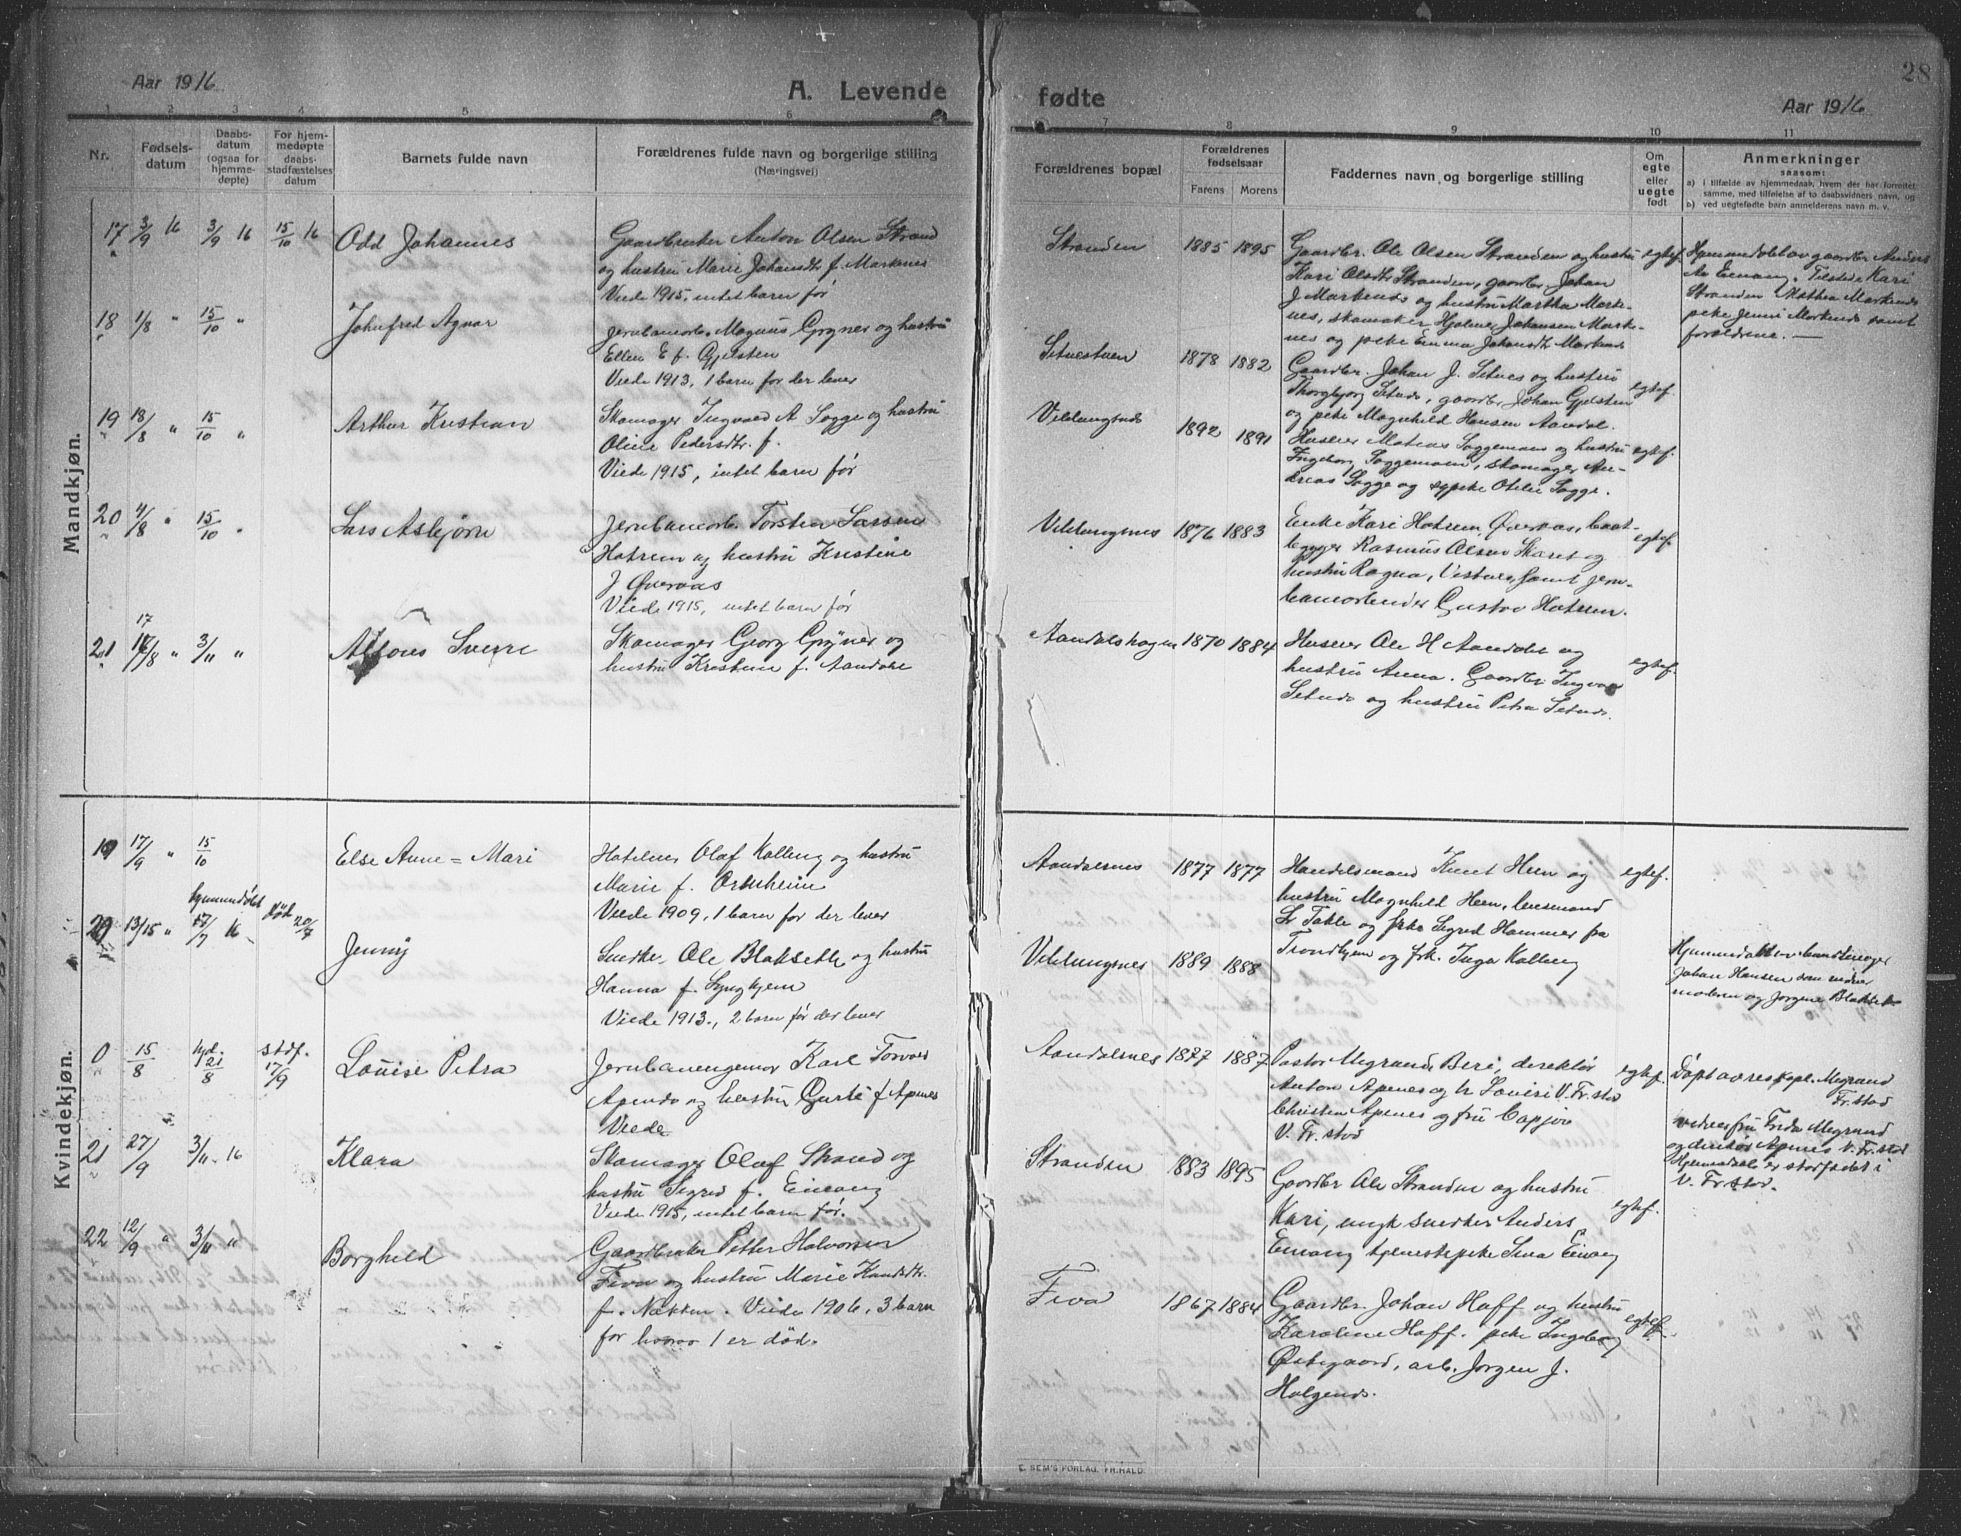 28
Aar 1916
A. Levende
fødte
Aar 1916
1 2 3 4 5 6
7 8 9 10 11
Nr.
Fødsels-
datum
Daabs-
datum
(ogsaa for
hjemme-
døpte)
For hjem-
medøpte
daabs-
stadfæstelses
datum
Barnets fulde navn
Forældrenes fulde navn og borgerlige stilling
(Næringsvei)
Forældrenes bopæl
Forældrenes
fødselsaar
Farens Morens
Faddernes navn og borgerlige stilling
Om
egte
eller
uegte
født
Anmerkninger
saasom:
a) i tilfælde av hjemmedaab, hvem der har forrettet
samme, med tilføielse af to daabsvidners navn, og
b) ved uegtefødte barn anmelderens navn m. v.
Mandkjøn.
17 3/9 16 3/9 16 15/10 16
Odd Johannes
Gaardbruker Anton Olsen Strand
og hustru Marie Johansdtr f. Markenes
Viede 1915, intet barn før
Stranden 1885 1895
Gaardbr. Ole Olsen Stranden og hustru
Kari Olsdtr Stranden, gaardbr. Johan
J Markenes og hustru Martha Marke-
nes, skomaker Hjalmer Johansen Mark-
nes og peke Emma Johansdtr Markenes
egtef.
Hjemmedøbt av gaardbr. Anders
Stranden Mathea Markenes
peke Jenni Markenes samt
forældrene. —
18 1/8 " 15/10 "
Johnfred Agnar
Jernbanearb. Magnus Gryner og hustru
Ellen E f. Gjelsten
Viede 1913, 1 barn før der lever
Setnestuen 1878 1882
Gaardbr. Johan J. Setnes og hustru
Thorgbjørg Setnes, gaardbr. Johan Gjelsten
og peke Magnhild Hansen Aandal.
egtef.
19 18/8 " 15/10 "
Arthur Kristian
Skomager Ingvald A Sogge og hustru
Oline Pedersdtr. f.
Viede 1915, intet barn før
Veblungsnes 1892 1891
Huseier Matias Soggemoen og hustru
Ingeborg Soggemoen, skomager An-
dreas Sogge og sypike Otelie Sogge.
egtef.
20 4/8 " 15/10 "
Lars Asbjørn
Jernbanearb. Torsten Larsen
Hatrem og hustru Kristine
J Øveraas
Viede 1915, intet barn før
Veblungsnes 1876 1883
Enke Kari Hatrem, Øveraas, baat-
bygger Rasmus Olsen Skaret og
hustru Ragna, Vestnes, samt jern-
banearbeider Gustav Hatrem.
egtef.
17
21 16/8 " 3/11 "
Alfons Sverre
Skomager Georg Gryner og
hustru Kristine f. Aandahl
Aandalshagen 1870 1884
Huseier Ole H Aandal og
hustru Anna. Gaardbr. Ingvar
Setnes og hustru Petra Setnes.
egtef.
Kvindekjøn.
19 17/9 " 15/10
Else Anne = Mari
Hoteleier Olaf Kolling og hustru
Marie f. Ormheim
Viede 1909, 1 barn før der lever
Aandalsnes 1877 1877
Handelsmand Knut Heen og
hustru Magnhild Heen, lensmand
Hr Takle og frk. Sigrid Hammer fra
Trondhjem og frk. Inga Kolling
egtef.
hjemmedøbt
død
20/7
13/15 " 17/7 16
Jenny
Snedker Ole Blakseth og hustru
Hanna f. Lyngheim
Viede 1913., 2 barn før der lever
Veblungsnes 1889 1888
Johan Hansen som vidner
moderen og Jørgine Blakseth
0 15/8 hjd. 21/8 stdf. 17/9
Louise Petra
Jernbaneingeniør Karl Torvald
Apenes og hustru Gurli f Apenes
Viede
Aandalsnes 1877 1887
Pastor Megrund, Beri, direktør
Anton Apenes og fr Lovise V. Fr. stad
Christen Apenes og fru Cappjøn
V. Fr. stod
egtef.
Døpt av res kpl. Megrund
Fr. stad
vidner fru Frida Megrund
og direktør Apenes V. Fr. stad
Hjemmedaab er stadfædet i
V. Fr. stod.
21 27/9 3/11 16
Klara
Skomager Olaf Strand og
hustru Sigrid f. Einang
Viede 1915, intet barn før.
Stranden 1883 1895
Gaardbr Ole Stranden og hustru
Kari, ungk snedker Anders
Einang tjenestepike Sina Einang
egtef.
22 12/9 " 3/11 "
Borghild
Gaardbruker Petter Halvorsen
Fiva og hustru Marie Knudsdtr.
f. Nakken. Viede 1906, 3 barn
før hvorav 1 er død.
Fiva 1867 1884
Gaardbr. Johan Hoff og hustru
Karoline Hoff. peke Ingeborg
Østigaard, arb. Jørgen J.
Halgenes.
egtef.
E. SEM'S FORLAG. FR.HALD.